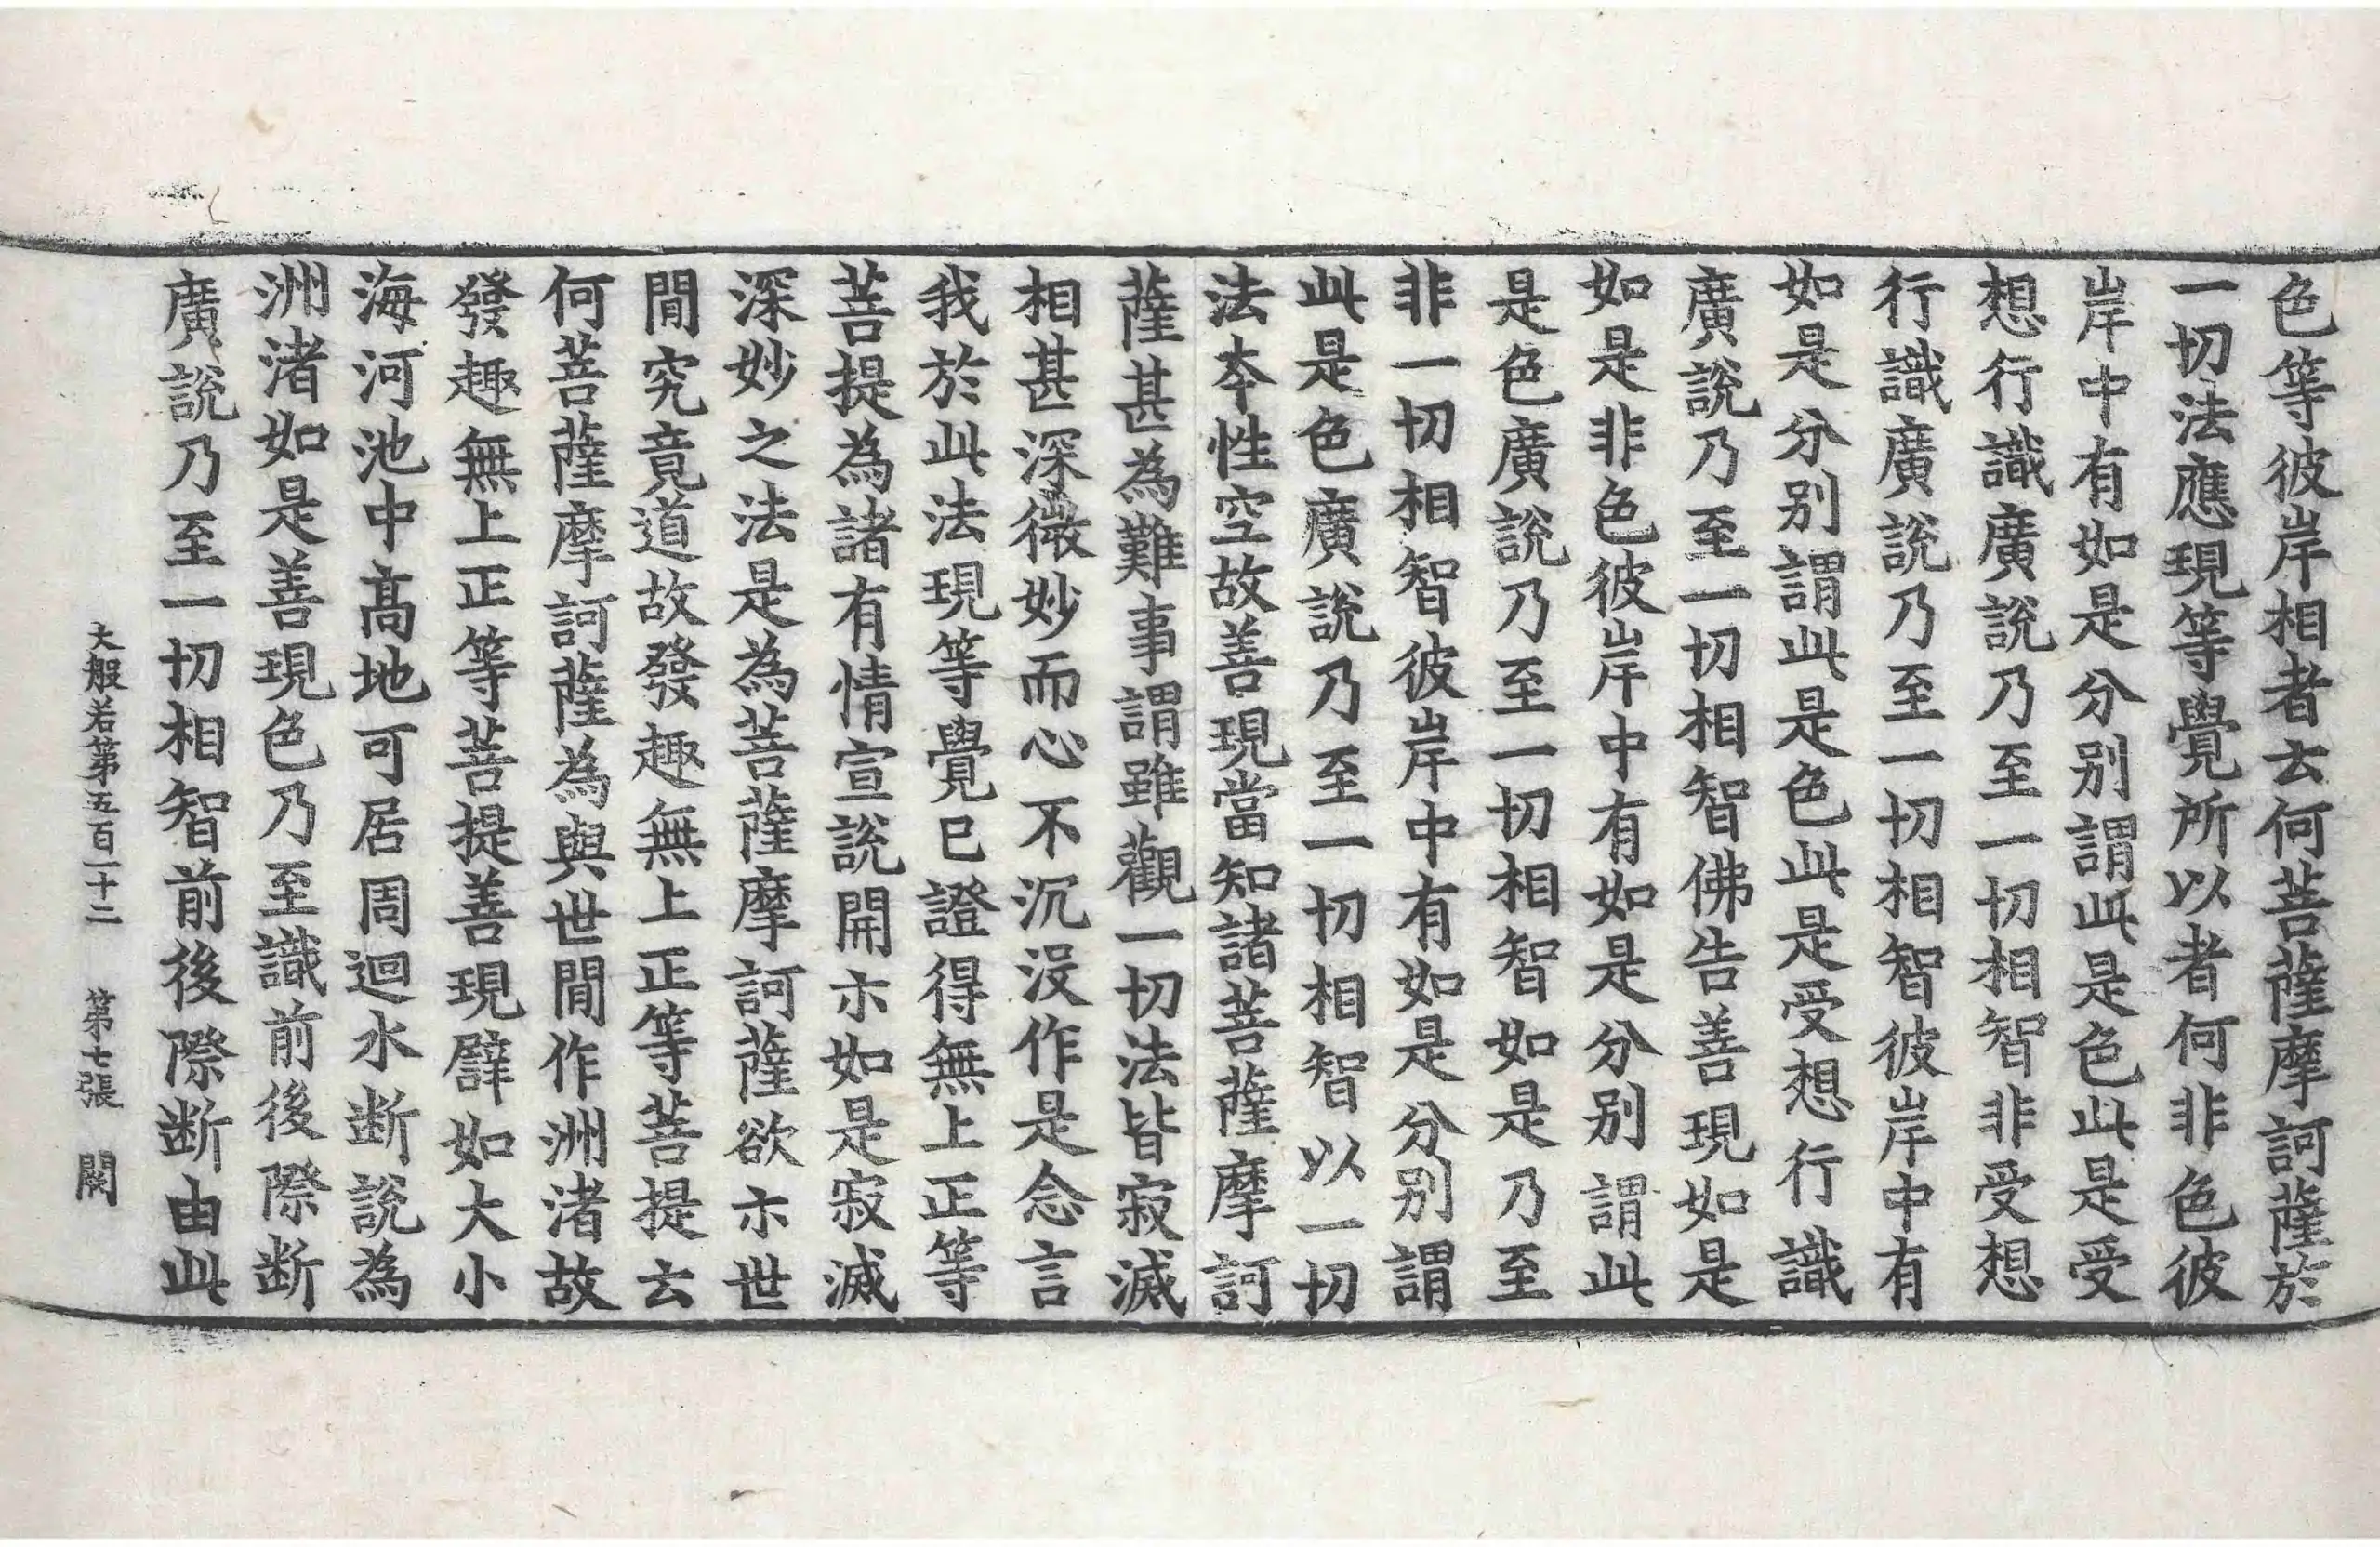 色等彼岸相者云何菩薩摩訶薩於
一切法應現等覺所以者何非色彼
岸中有如是分别謂此是色此是受
想行識廣說乃至一切相智非受想
行識廣說乃至一切相智彼岸中有
如是分别謂此是色此是受想行識
廣說乃至一切相智佛告善現如是
如是非色彼岸中有如是分别謂此
是色廣說乃至一切相智如是乃至
非一切相智彼岸中有如是分别謂
此是色廣說乃至一切相智以一切
法夲性空故善現當知諸菩薩摩訶
薩甚為難事謂雖觀一切法皆寂滅
相甚深微妙而心不沉没作是念言
我於此法現等覺已證得無上正等
菩提為諸有情宣說開尒如是寂滅
深妙之法是為菩薩摩訶薩欲尒世
間究竟道故發趣無上正等菩提云
何菩薩摩訶薩為與世間作洲渚故
發趣無上正等菩提善現譬如大小
海河池中高地可居周迴水断說為
洲渚如是善現色乃至識前後際断
廣說乃至一切相智前後際断由此
大般若第五百一十二 第七張 闕